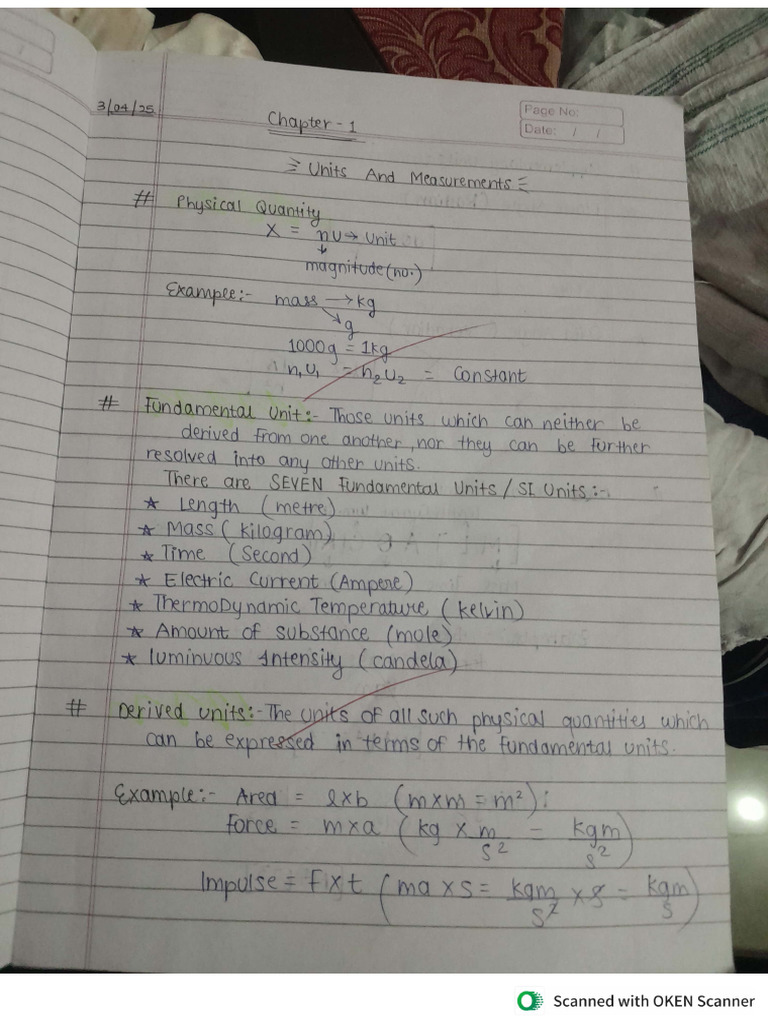 3/04/25
Page No:
Date: / /
Chapter - 1
Units And Measurements
# Physical Quantity
X = nu → unit
↓
magnitude (no.)
Example:- mass → kg
↘ g
1000g = 1kg
n₁u₁ = n₂u₂ = Constant
# Fundamental Unit:- Those units which can neither be
derived from one another, nor they can be further
resolved into any other units.
There are SEVEN Fundamental Units / SI Units:-
★ Length (metre)
★ Mass (kilogram)
★ Time (Second)
★ Electric Current (Ampere)
★ ThermoDynamic Temperature (kelvin)
★ Amount of substance (mole)
★ luminuous Intensity (candela)
# Derived units:- The units of all such physical quantities which
can be expressed in terms of the fundamental units.
Example:- Area = l×b (m×m = m²);
Force = m×a (kg × m/s² = kgm/s²)
Impulse = F×t (ma × s = kgm/s² × s = kgm/s)
Scanned with OKEN Scanner